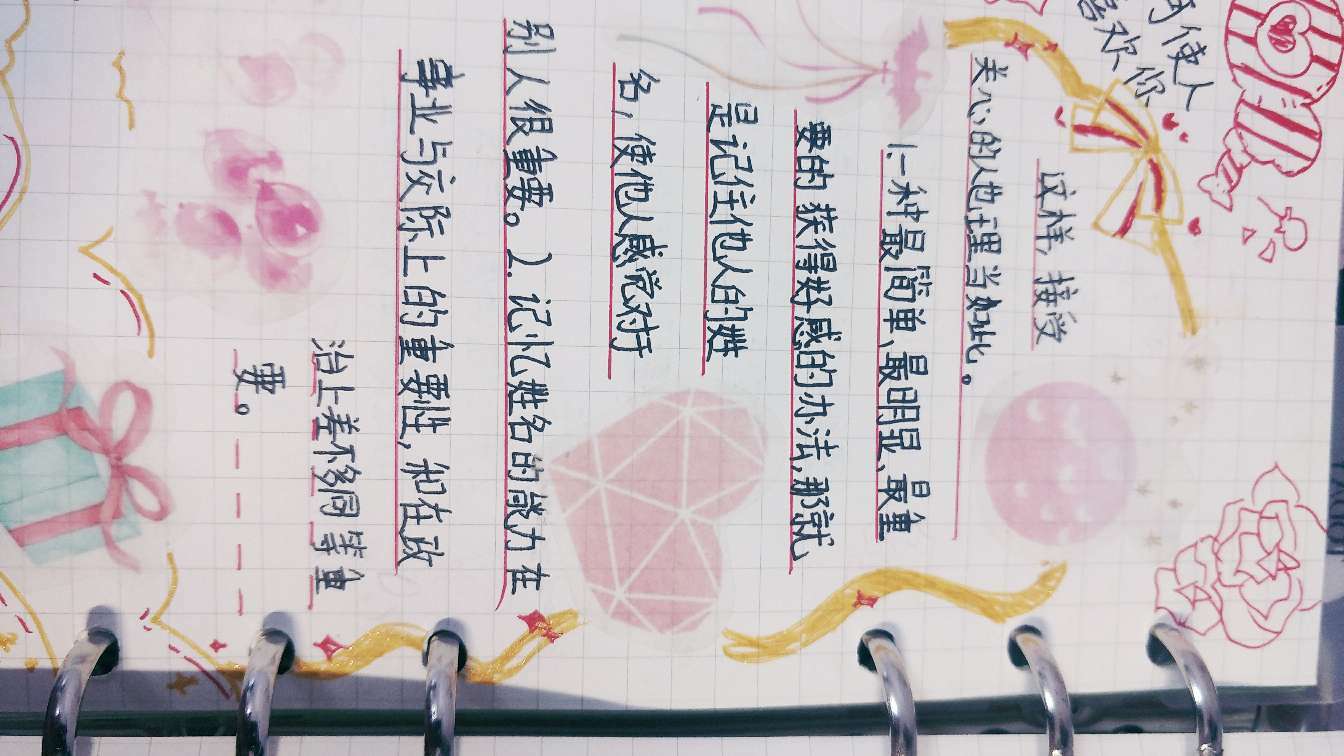 可使人
喜欢你
这样，接受
关心的人也理当如此。
1.一种最简单、最明显、最重
要的获得好感的办法，那就
是记住他人的姓
名，使他人感觉对于
别人很重要。2.记忆姓名的能力在
事业与交际上的重要性，和在政
治上差不多同等重
要。